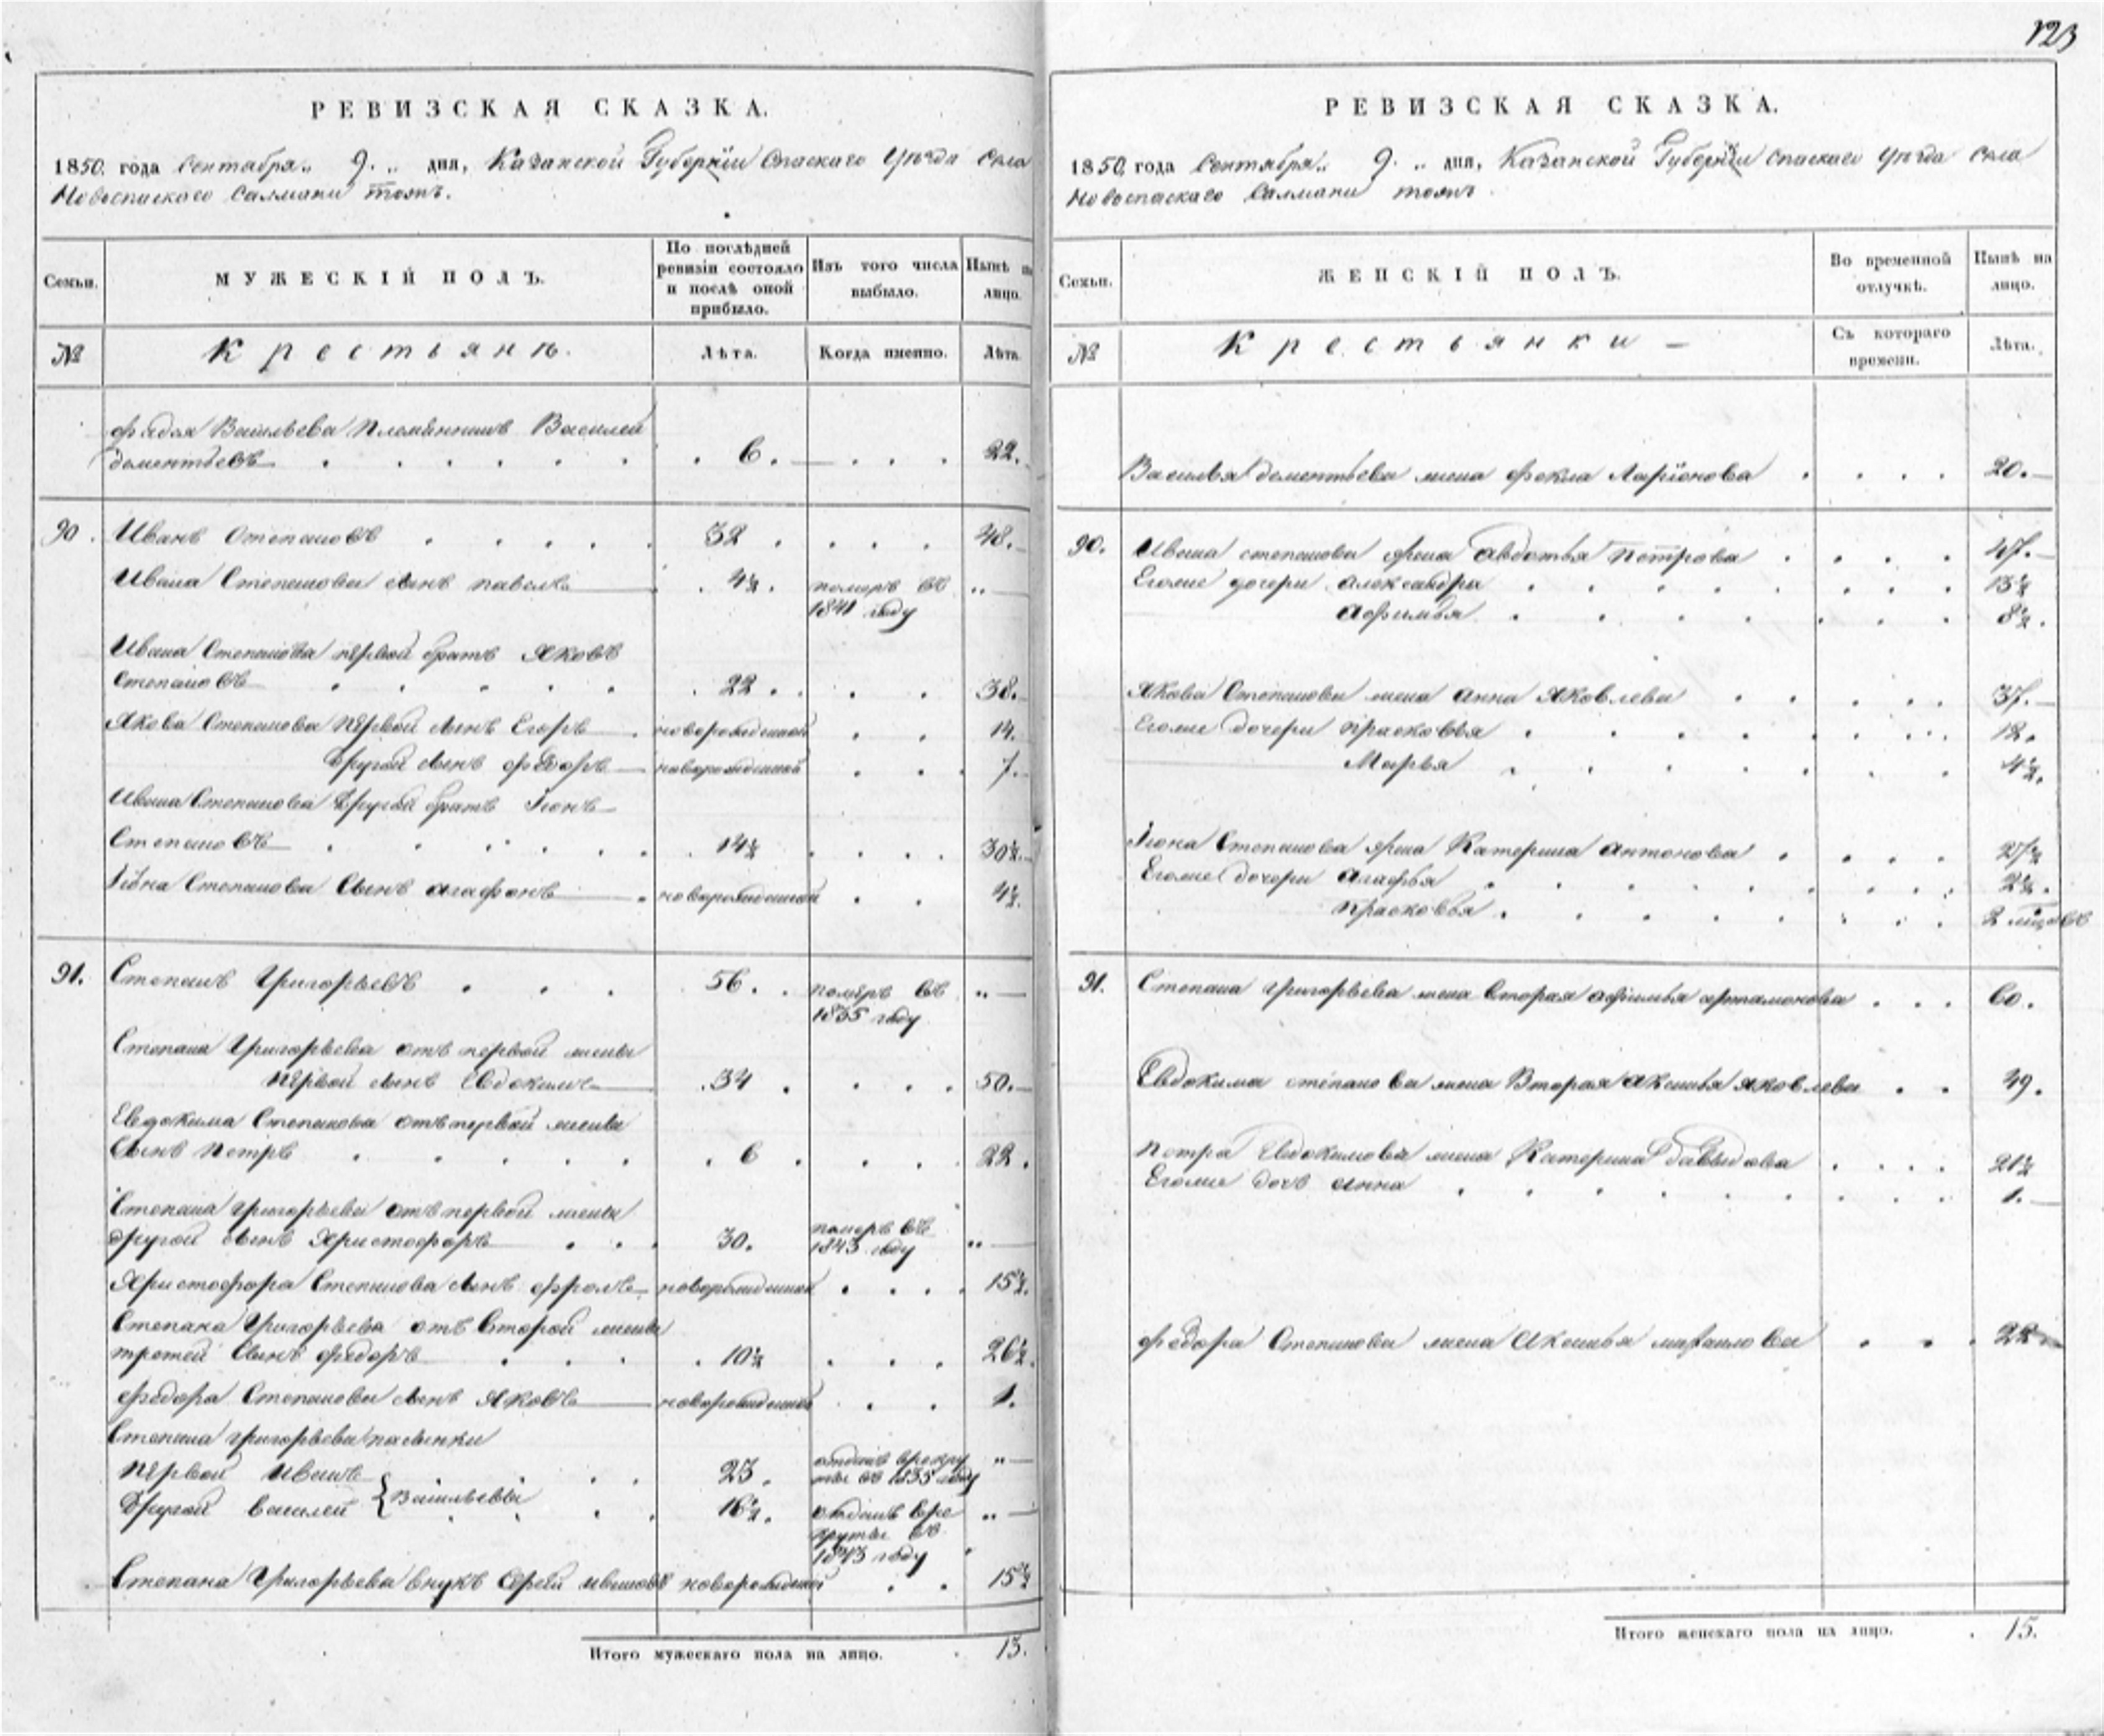 123
РЕВИЗСКАЯ СКАЗКА.
1850. года Сентября „ 9. „ дня, Казанской Губернїи Спаскаго Уѣзда села
Новоспаскаго Салмани тожъ.
Семьи.
МУЖЕСКІЙ ПОЛЪ.
По послѣдней ревизіи состояло и послѣ оной прибыло.
Изъ того числа выбыло.
Нынѣ на лицо.
№
Крестьянъ.
Лѣта.
Когда именно.
Лѣта.
Федора Васильева Племянникъ Василей
Дементьевъ 6. 22.
90. Иванъ Степановъ 32 48.
Ивана Степанова сынъ павелъ 4½. померъ въ „
1841 году
Ивана Степанова первой братъ Яковъ
Степановъ 22. 38.
Якова Степанова первой сынъ Егоръ новорожденной 14.
Другой сынъ Федоръ новорожденной 7.
Ивана Степанова Другой братъ Іона
Степановъ 14½ 30½.
Іона Степанова Сынъ агафонъ новорожденной 4½.
91. Степанъ Григорьевъ 56. померъ въ „
1835 году
Степана Григорьева отъ первой жены
первой сынъ Евдокимъ 34. 50.
Евдокима Степанова отъ первой жены
Сынъ Петръ 6. 22.
Степана Григорьева отъ первой жены
другой сынъ Христофоръ 30. померъ въ 1843 году „
Христофора Степанова сынъ Фролъ новорожденной 15½.
Степана Григорьева отъ Второй жены
третей Сынъ Федоръ 10½ 26½.
Федора Степанова сынъ Яковъ новорожденной 1.
Степана Григорьева пасынки
Первой Иванъ 23. отданъ врекру „
ты въ 1835 году
Другой Василей { Васильевы 16½. отданъ вре „
круты въ
1843 году
Степана Григорьева внукъ Сергей ивановъ новорожденной 15½
Итого мужескаго пола на лицо. 13.
РЕВИЗСКАЯ СКАЗКА.
1850. года Сентября „ 9. „ дня, Казанской Губернїи Спаскаго Уѣзда Села
Новоспаскаго Салмани тожъ.
Семьи.
ЖЕНСКІЙ ПОЛЪ.
Во временной отлучкѣ.
Нынѣ на лицо.
№
Крестьянки
Съ котораго времени.
Лѣта.
Василья Дементьева жена Фекла Ларїонова 20.
90. Ивана степанова жена Авдотья Петрова 47.
Егоже дочери Александра 13½
Афимья 8½.
Якова Степанова жена Анна Яковлева 37.
Егоже дочери прасковья 12.
Марья 4½.
Іона Степанова жена Катерина Антонова 27½
Егоже дочери Агафья 2½.
прасковья 2 мѣсецовъ
91. Степана Григорьева жена Вторая афимья артамонова 60.
Евдокима степанова жена Вторая Аксинья яковлева 49.
Петра Евдокимова жена Катерина Давыдова 21½
Егоже дочь анна 1.
Федора Степанова жена Аксинья 22
Итого женскаго пола на лицо. 15.